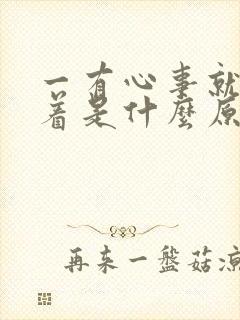 一有心事就
着是什麼原
再来一盤菇凉